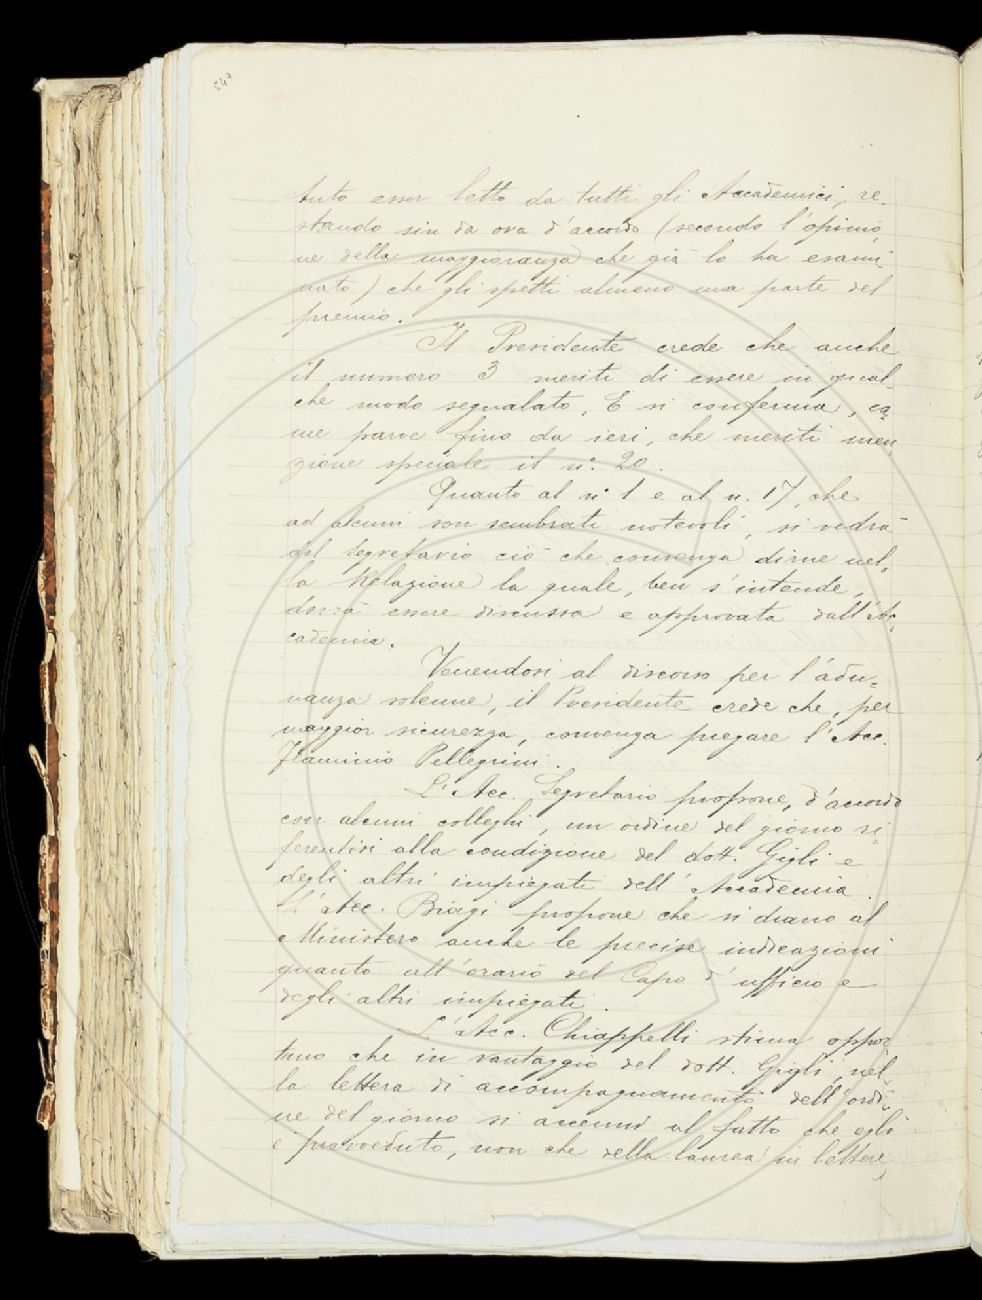 540
tuto esser letto da tutti gli Accademici, re-
stando sin da ora d'accordo (secondo l'opinio
ne della maggioranza che già lo ha esami
nato) che gli spetti almeno una parte del
premio.
Il Presidente crede che anche
il numero 3 meriti di essere in qual
che modo segnalato. E si conferma, co-
me parve fino da ieri, che meriti men
zione speciale il n.° 20.
Quanto al n.° 1 e al n. 17, che
ad alcuni son sembrati notevoli, si vedrà
dal Segretario ciò che convenga dirne nel-
la Relazione la quale, ben s'intende,
dovrà essere discussa e approvata dall'Ac-
cademia.
Venendosi al discorso per l'adu=
nanza solenne, il Presidente crede che, per
maggior sicurezza, convenga pregare l'Acc.
Flaminio Pellegrini.
L'Acc. Segretario propone, d'accordo
con alcuni colleghi, un ordine del giorno ri=
ferentisi alla condizione del dott. Gigli e
degli altri impiegati dell'Accademia.
L'Acc. Biagi propone che si diano al
Ministero anche le precise indicazioni
quanto all'orario del Capo d'ufficio e
degli altri impiegati.
L'Acc. Chiappelli stima oppor
tuno che in vantaggio del dott. Gigli, nel-
la lettera di accompagnamento dell'ordi-
ne del giorno si accenni al fatto che egli
è provveduto, non che della laurea in lettere,